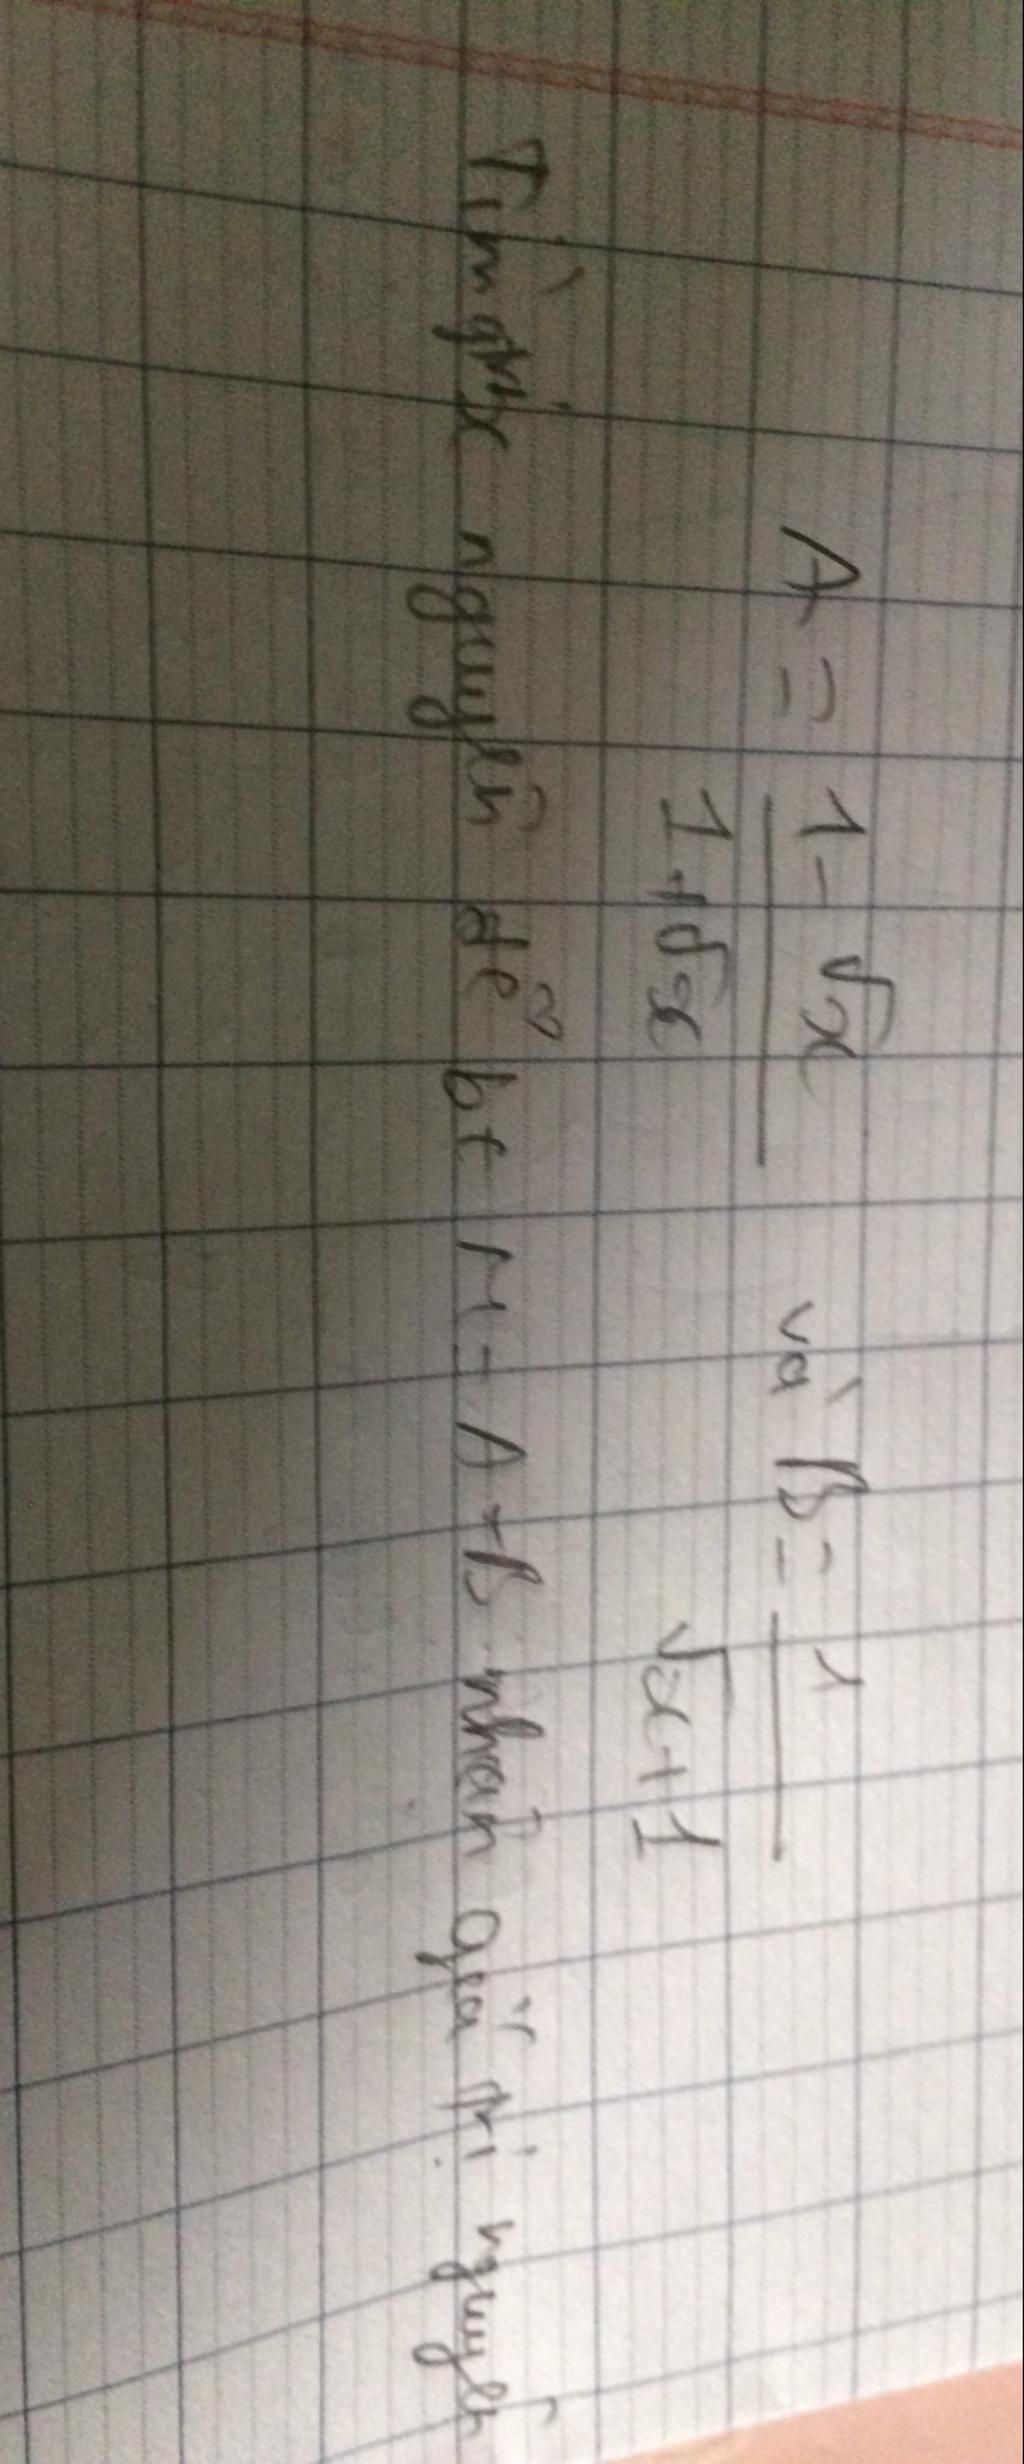 A = (1 - √x) / (1 + √x) và B = 1 / (√x + 1)
Tìm gtri x nguyên để bt M = A + B nhận giá trị nguyên